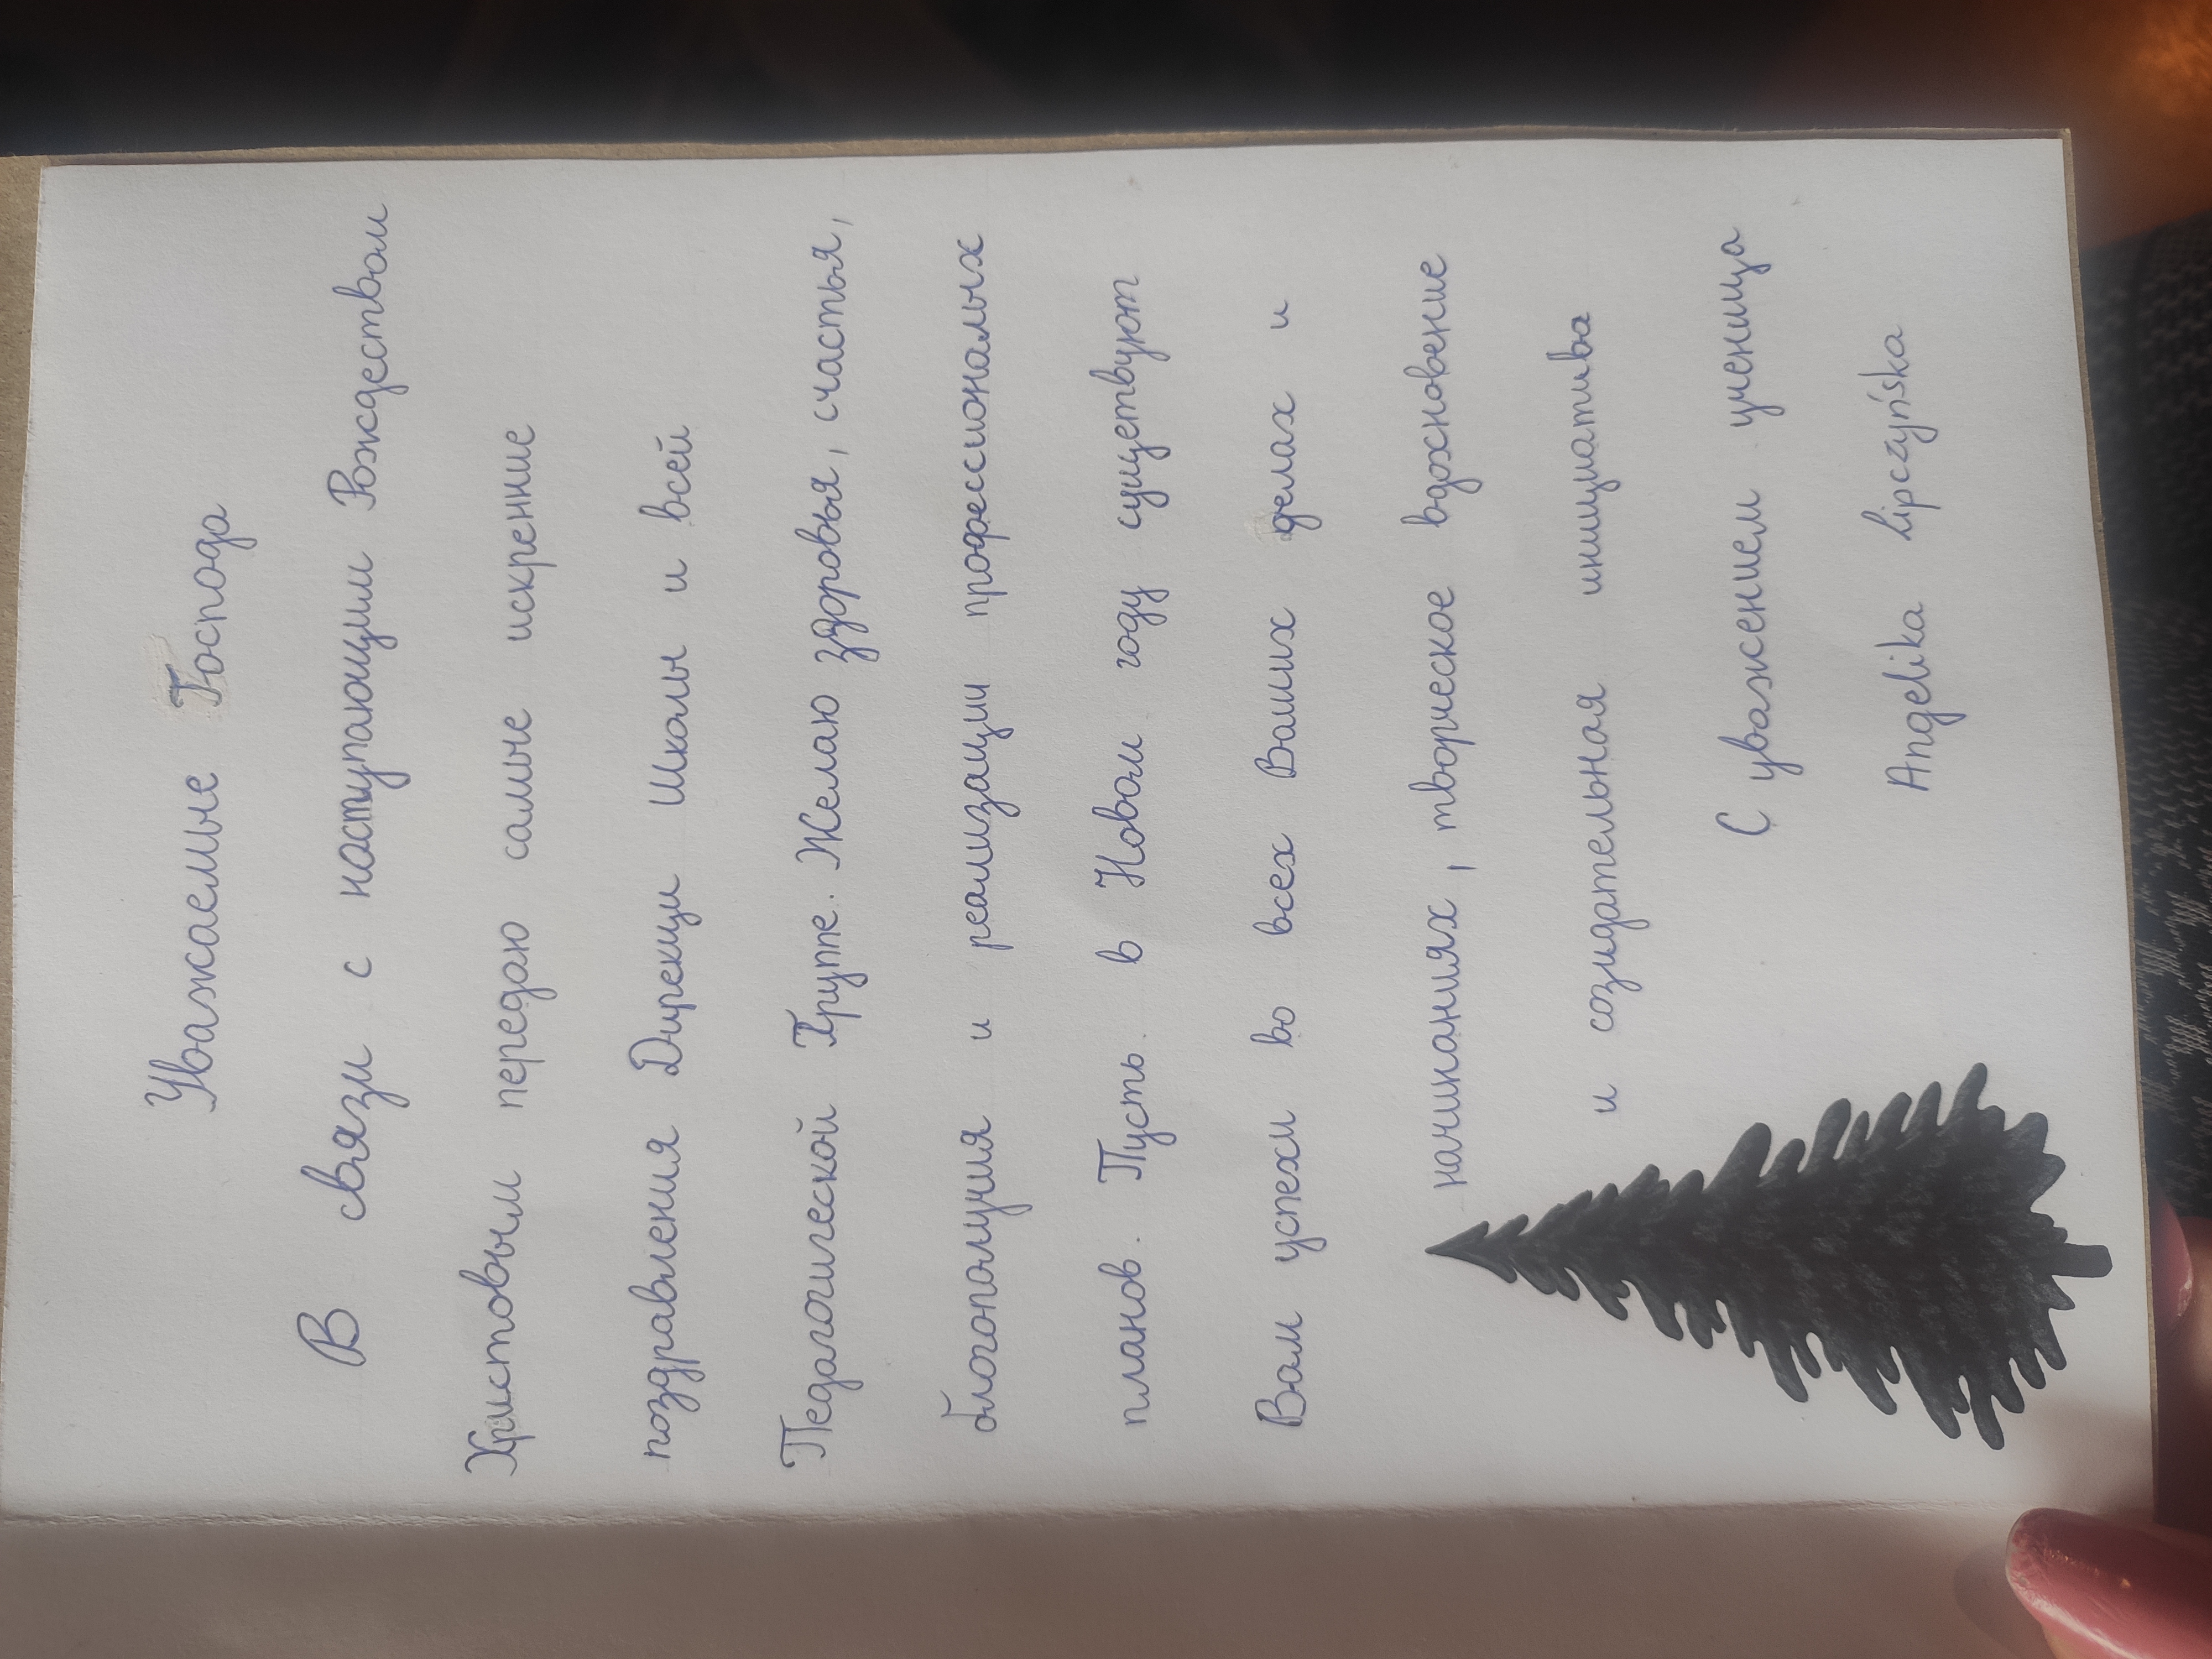 Уважаемые Господа
В связи с наступающим Рождеством
Христовым передаю самые искренние
поздравления Дирекци Школы и всей
Педагогической Группе. Желаю здоровья, счастья,
благополучия и реализации профессиональых
планов. Пусть в Новом году сущетвуют
Вам успехи во всех Ваших делах и
начинаниях, творческое вдохновение
и созидательная инициатива
С уважением ученица
Angelika Lipczyńska